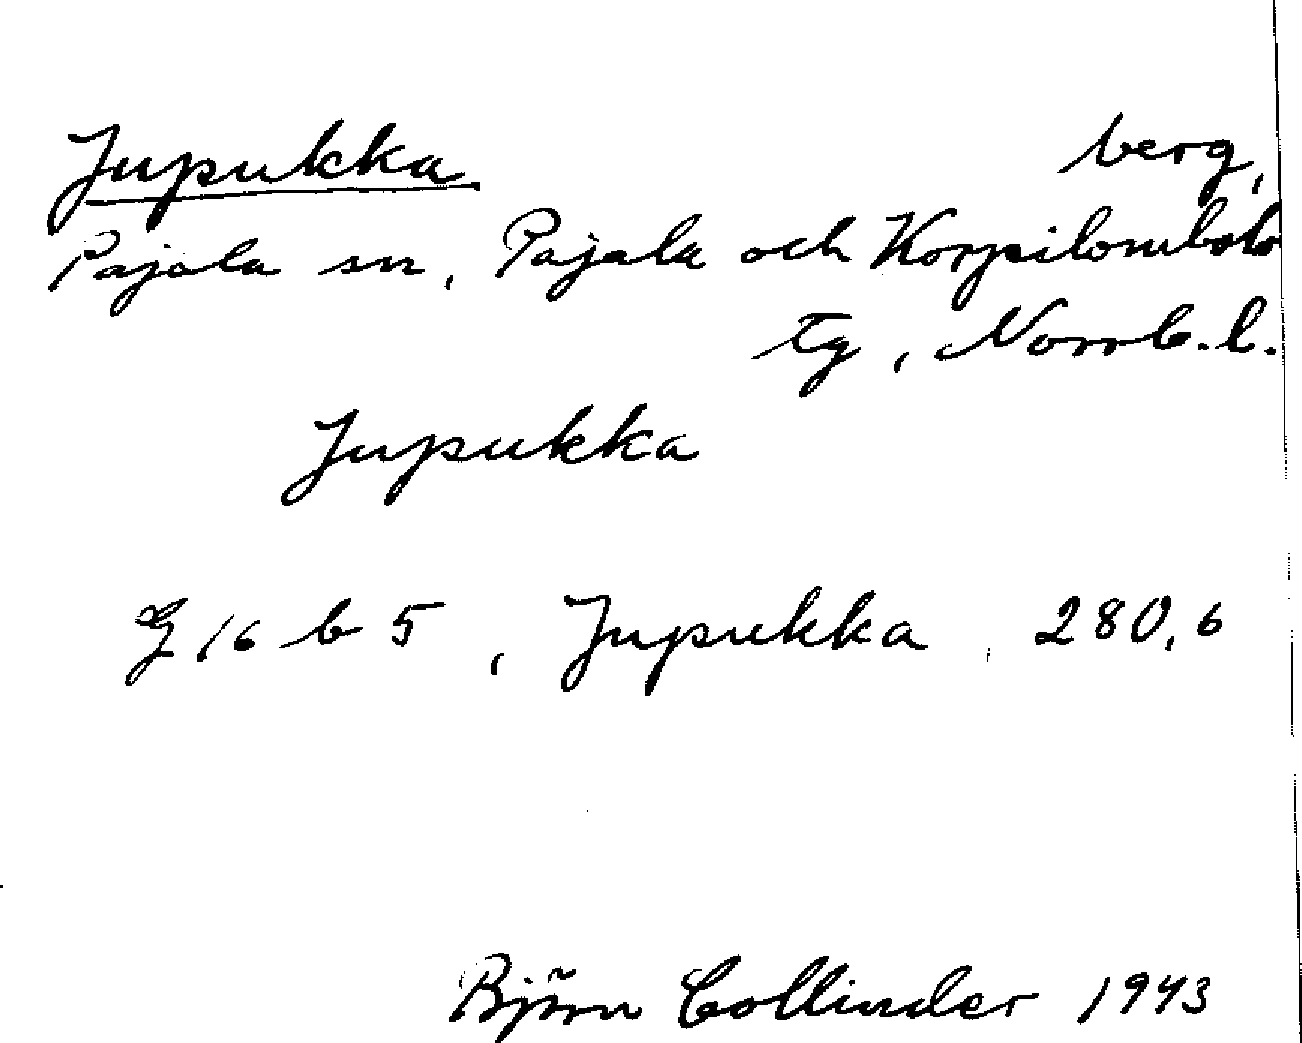 Jupukka berg,
Pajala sn, Pajala och Korpilombolo
tg, Norrb. l.
Jupukka
G 16 b 5, Jupukka, 280,6
Björn Collinder 1943